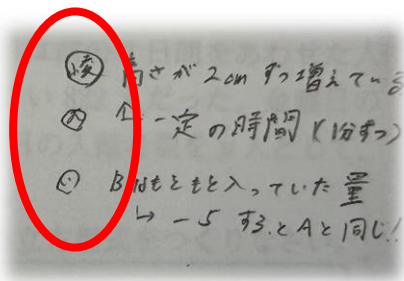 高さが2cmずつ増えている
↑ 一定の時間(1分ずつ)
Bはもともと入っていた量
↳ -5するとAと同じ!!